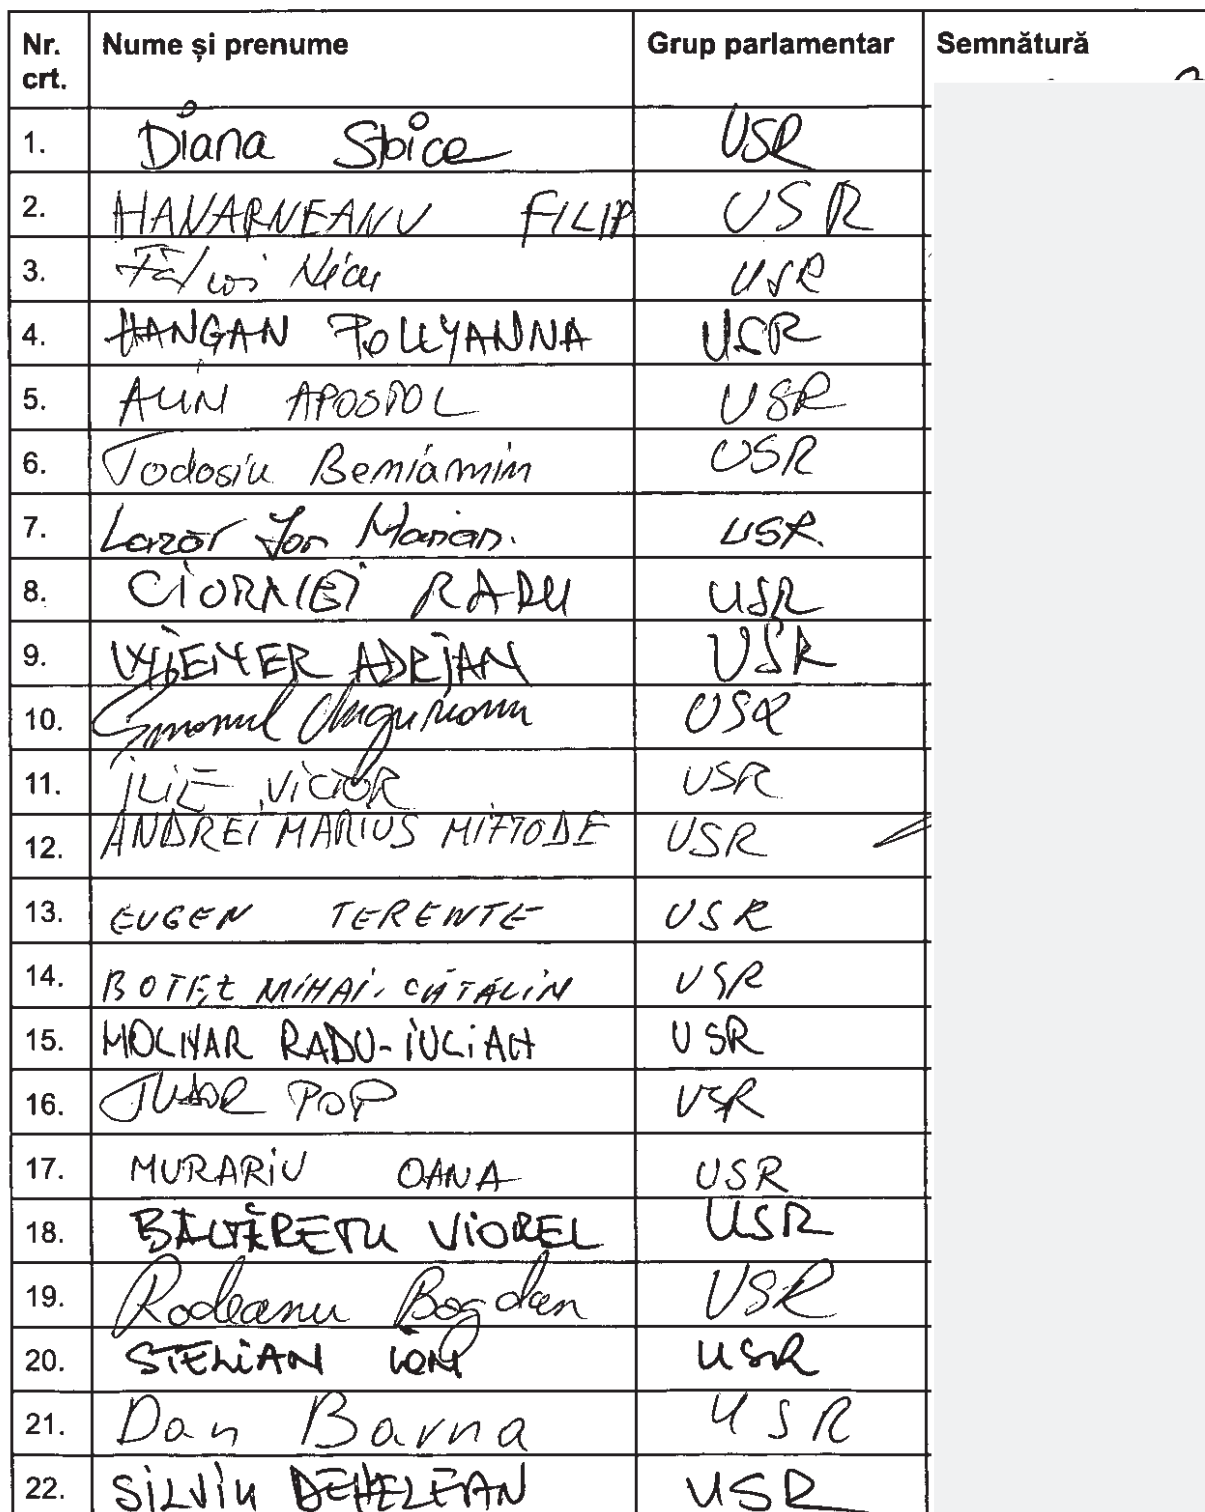 Nr. crt. Nume și prenume Grup parlamentar Semnătură
1. Diana Stoica USR
2. HAVARNEANU FILIP USR
3. Fălcoi Nicu USR
4. HANGAN POLLYANNA USR
5. ALIN APOSTOL USR
6. Todosiu Beniamin USR
7. Lazar Ion Marian. USR.
8. CIORNEI RADU USR
9. WIENER ADRIAN USR
10. Emanuel Ungureanu USR
11. ILIE VICTOR USR
12. ANDREI MARIUS MIFTODE USR
13. EUGEN TERENTE USR
14. BOTEZ MIHAI-CĂTĂLIN USR
15. MOLNAR RADU-IULIAN USR
16. TUDOR POP USR
17. MURARIU OANA USR
18. BĂLTĂREȚU VIOREL USR
19. Rodeanu Bogdan USR
20. STELIAN ION USR
21. Dan Barna USR
22. SILVIU DEHELEAN USR